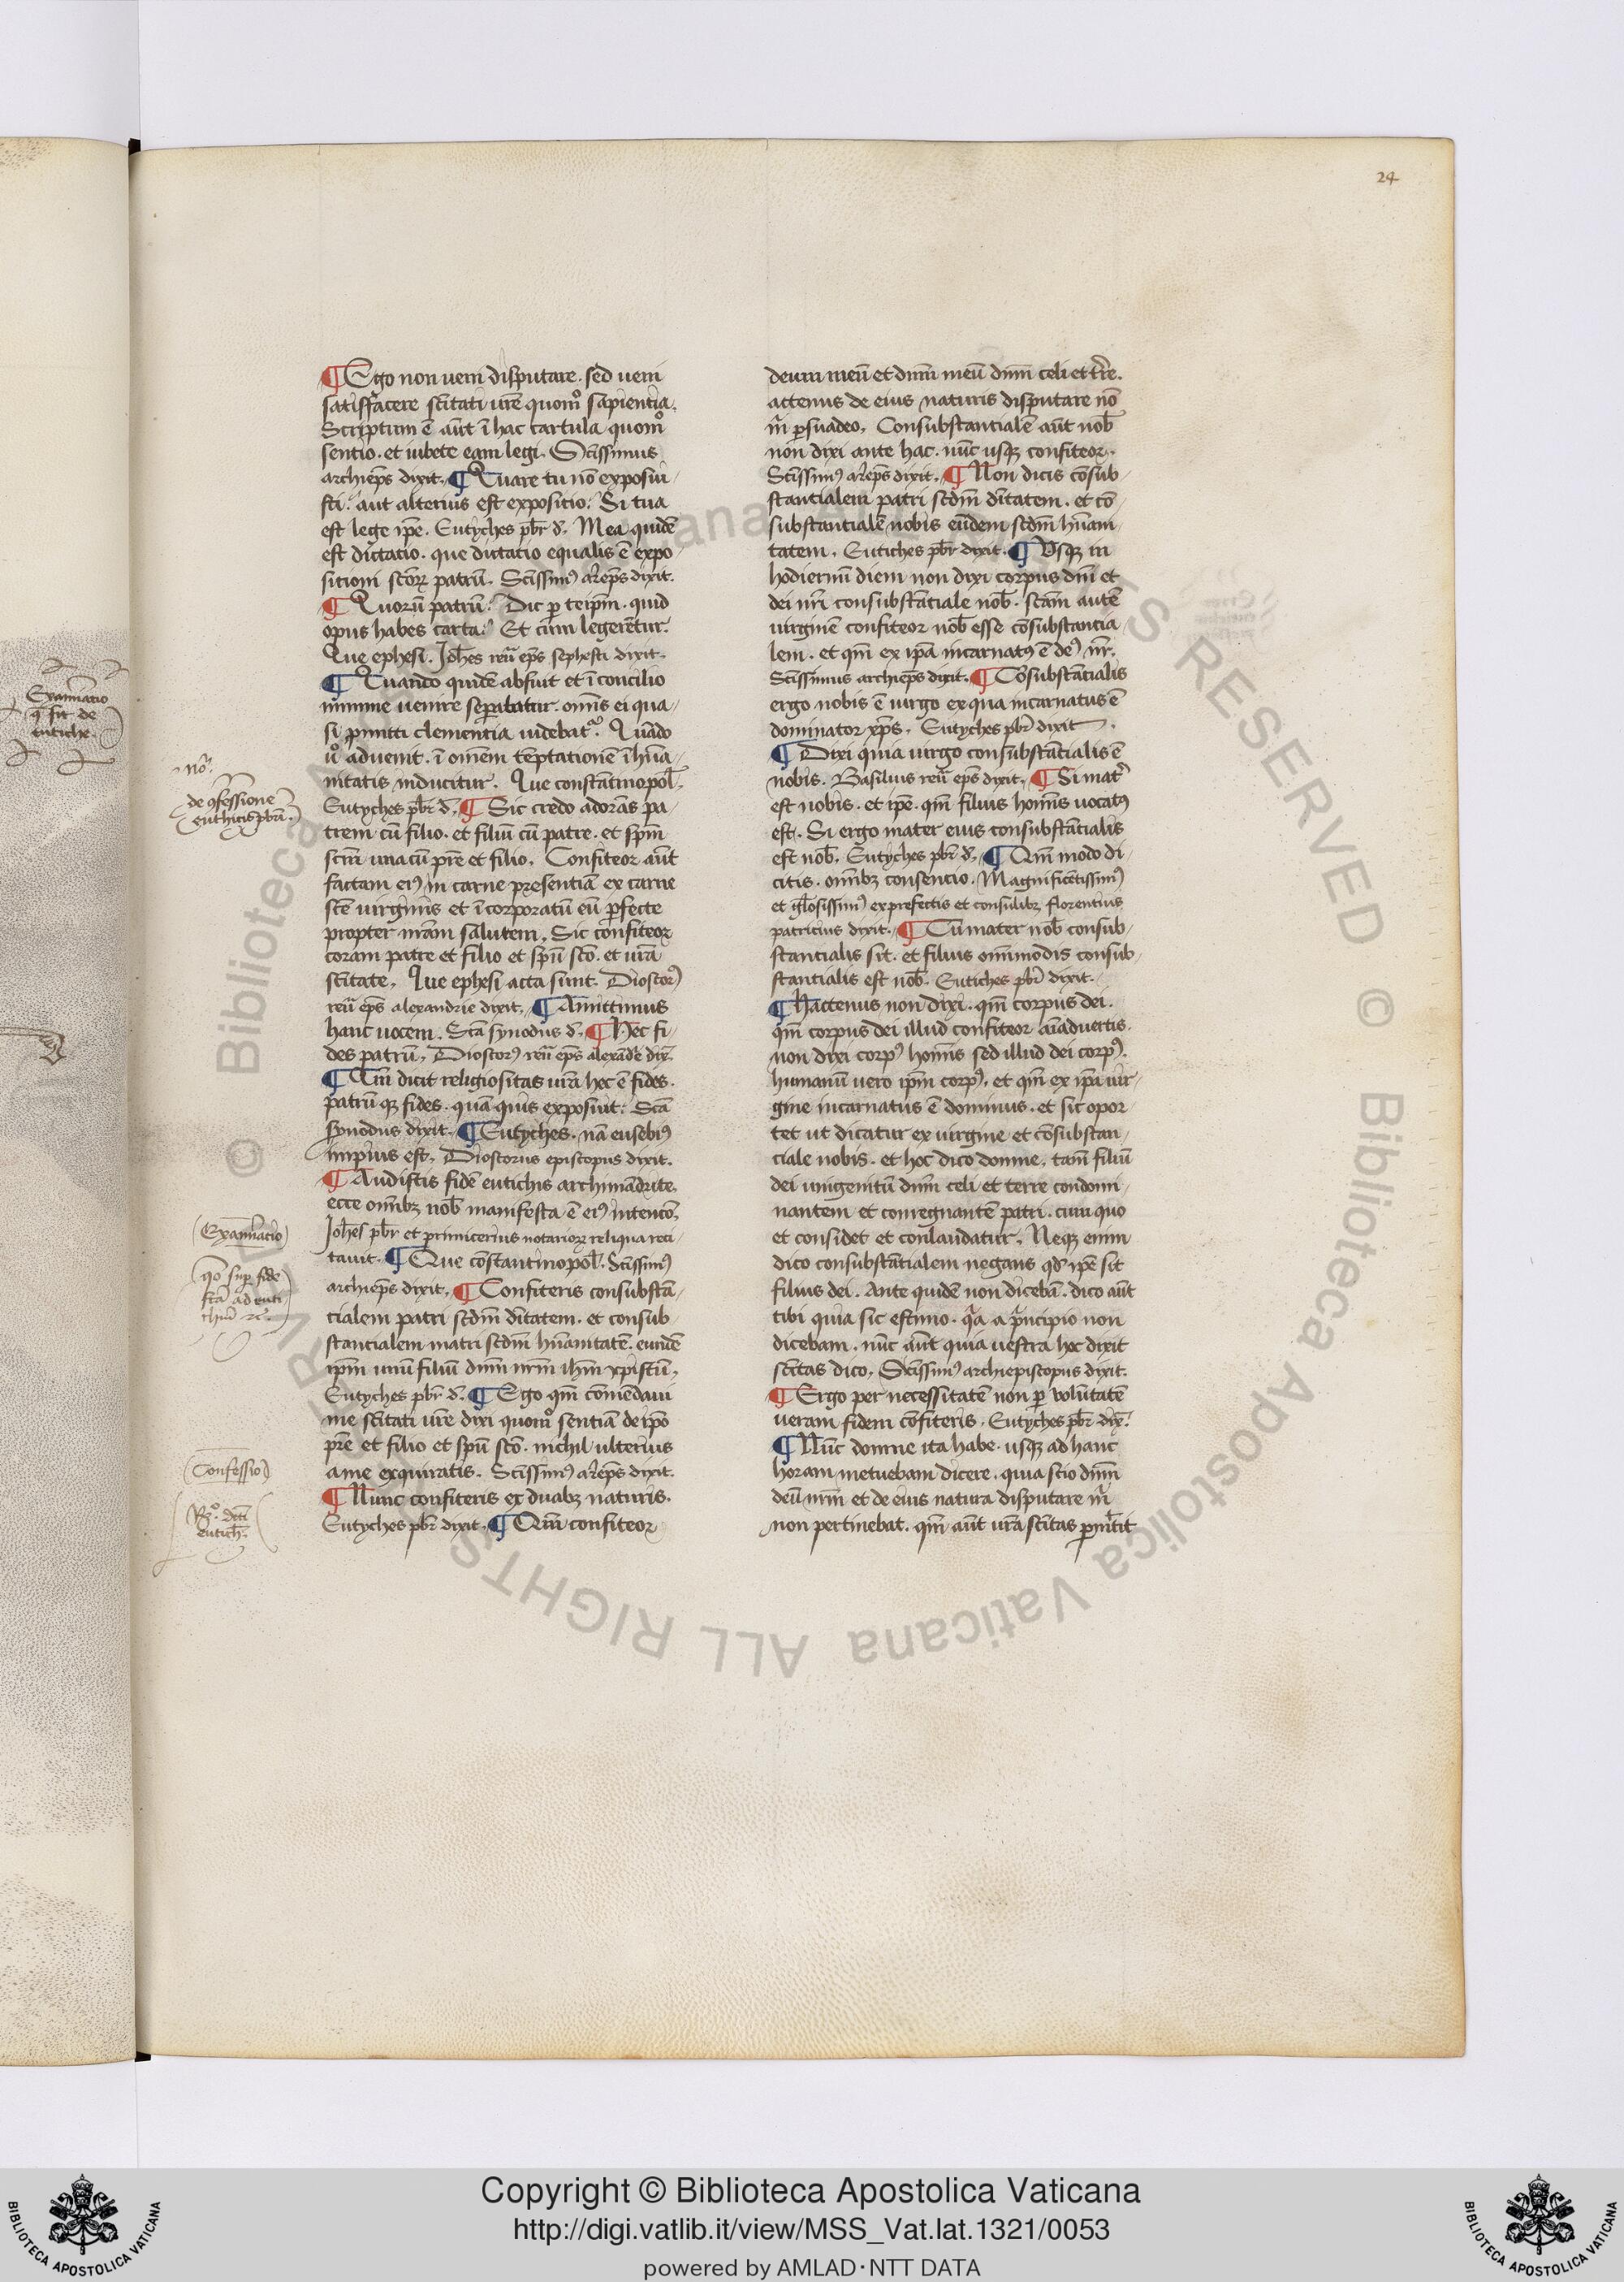 24
¶ Ego non ueni disputare. sed ueni
satisfacere sc̄itati ur̄e quomͦ sapientia.
Scriptum ē aūt ī hac cartula quomͦ
sentio. et iubete eam legi. Sc̄issimus
archiep̄s dixit. ¶ Quare tu nō exposui-
sti? aut alterius est expositio? Si tua
est lege ip̄e. Eutyches pb̄r d̄. Mea quidē
est dictatio. que dictatio equalis ē expo-
sitioni sc̄oꝝ patrū. Sc̄issimꝰ ar̄ep̄s dixit.
¶ Quorū patrū? Dic ꝑ teip̄m. quid
opus habes carta? Et cum legeret̄ur.
Que ephesi. Joh̄es reu̅ ep̄s sephesti dixit.
¶ Quando quidē abfuit et ī concilio
minime uenire seꝑabatur. om̄is ei qua-
si ꝓmitti clementia uidebatᷣ. Quādo
uͦ aduenit. ī om̄em teptationē ī hūa-
nitatis inducitur. Que constātinopol̄.
Eutyches pb̄r d̄. ¶ Sic credo adorās pa-
trem cū filio. et filiū cū patre. et sp̄m
sc̄m una cū pr̄e et filio. Confiteor aūt
factam eiꝰ in carne presentiā ex carne
sc̄e uirginis et īcorporatū eū ꝑfecte
propter nr̄am salutem. Sic confiteor
coram patre et filio et sp̄u sc̄o. et ur̄a
sc̄itate. Que ephesi acta sunt. Dioscorꝰ
reu̅ ep̄s alexandrie dixit. ¶ Amittimus
hanc uocem. Sc̄a synodus d̄. ¶ Hec fi-
des patrū. Dioscorꝰ reu̅ ep̄s alexād̄e dix̄.
¶ Qm̄ dicit religiositas ur̄a hec ē fides.
patrū qꝫ fides. quā quis exposuit? Sc̄a
synodus dixit. ¶ Eutyches. nā eusebiꝰ
impius est. Dioscorus episcopus dixit.
¶ Audistis fidē eutichis archimādrite.
ecce om̄ibꝫ nob̄ manifesta ē eiꝰ intenc̄o.
Joh̄es pb̄r et primicerius notarioꝝ reliqua reci-
tauit. ¶ Que cōstantinopol̄. Sc̄issimꝰ
archiep̄s dixit. ¶ Confiteris consubstā-
tialem patri scd̄m d̄itatem. et consub-
stantialem matri scd̄m hūanitatē. eundē
ip̄m unū filiū dn̄m nr̄m ih̄m xp̄istū.
Eutyches pb̄r d̄. ¶ Ego qm̄ comēdaui
me sc̄itati ur̄e dixi quomͦ sentiā de ip̄o
pr̄e et filio et sp̄u sc̄o. nichil ulterius
a me exquiratis. Sc̄issimꝰ ar̄ep̄s dixit.
¶ Nunc confiteris ex duabꝫ naturis.
Eutyches pb̄r dixit. ¶ Qm̄ confiteor
deum meū et dn̄m meū dn̄m celi et tr̄re.
actenus de eius naturis disputare nō
m̄ ꝑsuadeo. Consubstantialē aūt nob̄
non dixi ante hac. nūc usqꝫ confiteor.
Sc̄issimꝰ ar̄ep̄s dixit. ¶ Non dicis cōsub-
stantialem patri scd̄m d̄itatem. et cō-
substantialē nobis eūdem scd̄m hūani-
tatem. Eutiches pb̄r dixit. ¶ Usqꝫ in
hodiernū diem non dixi corpus dn̄i et
dei nr̄i consubstātiale nob̄. sc̄am autē
uirginē confiteor nob̄ esse cōsubstantia-
lem. et qm̄ ex ip̄a incarnatꝰ ē deꝰ nr̄.
Sc̄issimus archiep̄s dixit. ¶ Cōsubstātialis
ergo nobis ē uirgo ex qua incarnatus ē
dominator xp̄s. Eutyches pb̄r dixit.
¶ Dixi quia uirgo consubstātialis ē
nobis. Basilius reu̅ ep̄s dixit. ¶ Si mat̄
est nobis. et ip̄e. qm̄ filius hom̄is uocatꝰ
est. Si ergo mater eius consubstātialis
est nob̄. Eutyches pb̄r d̄. ¶ Qm̄ modo di-
citis. om̄ibꝫ consencio. Magnificētissimꝰ
et gl̄osissimꝰ ex prefectis et consulibꝫ florentius
patricius dixit. ¶ Cū mater nob̄ consub-
stantialis sit. et filius omnimodis consub-
stantialis est nob̄. Eutiches pb̄r dixit.
¶ Hactenus non dixi. qm̄ corpus dei.
qm̄ corpus dei illud confiteor aīaduertis.
non dixi corpꝰ hom̄is sed illud dei corpꝰ.
humanū uero ip̄m corpꝰ. et qm̄ ex ip̄a uir-
gine incarnatus ē dominus. et sic opor-
tet ut dicatur ex uirgine et cōsubstan-
ciale nobis. et hoc dico domne. tam̄ filiū
dei unigenitū dn̄m celi et terre condomi-
nantem et conregnantē patri. cum quo
et considet et conlaudatur. Neqꝫ enim
dico consubstātialem negans qd̄ ip̄e sit
filius dei. Ante quidē non dicebā. dico aūt
tibi quia sic estimo. qͣa a pͥncipio non
dicebam. nūc aūt quia uestra hoc dixit
sc̄itas dico. Sc̄issimꝰ archiepiscopus dixit.
¶ Ergo per necessitatē non ꝑ voluntatē
ueram fidem cōfiteris. Eutyches pb̄r dix̄.
¶ Nūc domne ita habe. usqꝫ ad hanc
horam metuebam dicere. quia scio dn̄m
deū nr̄m et de eius natura disputare m̄
non pertinebat. qm̄ aūt ur̄a sc̄itas ꝑmittit
de ꝯfessione
Examīatio
Confessio
Copyright © Biblioteca Apostolica Vaticana
http://digi.vatlib.it/view/MSS_Vat.lat.1321/0053
powered by AMLAD·NTT DATA
BIBLIOTECA APOSTOLICA VATICANA
BIBLIOTECA APOSTOLICA VATICANA
© Biblioteca Apostolica Vaticana ALL RIGHTS RESERVED